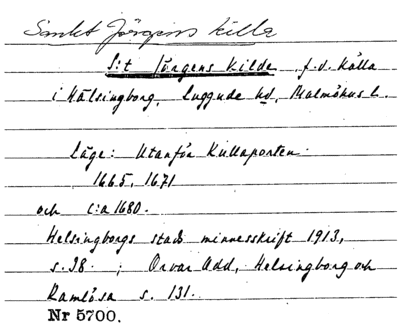 Sankt Jörgens källa
S:t Jörgens Kilde f.d. källa
i Hälsingborg, Luggude hd, Malmöhus l.
Läge: Utanför Kullaporten.
1665, 1671
och c:a 1680.
Helsingborgs stads minnesskrift 1913,
s. 38. ; Orvar Odd, Helsingborg och
Ramlösa s. 131.
Nr 5700.